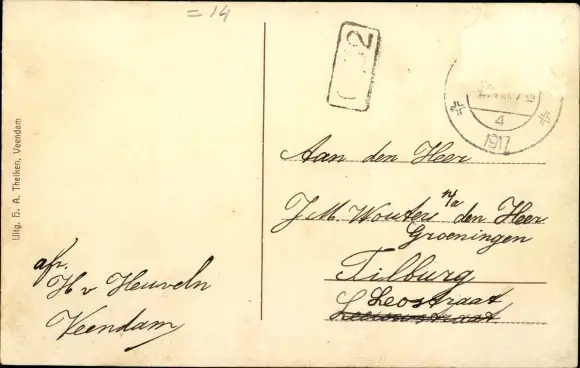 = 14
2
4
1917
Uitg. H. A. Theiken, Veendam
Aan den Heer
J. M. Wouters n/a den Heer
Groeningen
Tilburg
Leostraat
afz.
H v Heuveln
Veendam